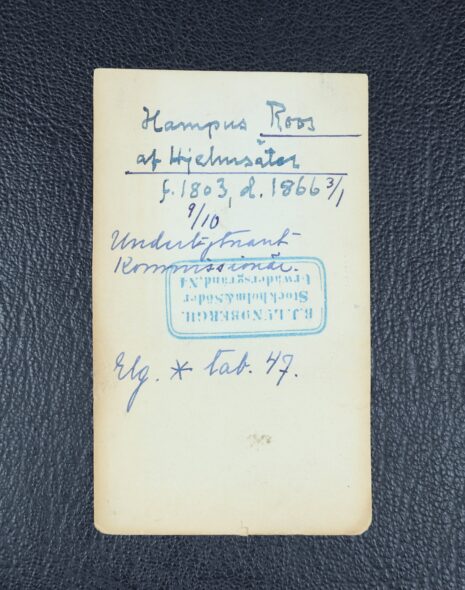 Hampus Roos
af Hjelmsäter
f. 1803, d. 1866 3/1
9/10
Underlöjtnant
Kommissionär.
B.J. LUNDBERGH.
Stockholm & Söder
Urvädersgränd. N4
Elg. * tab. 47.